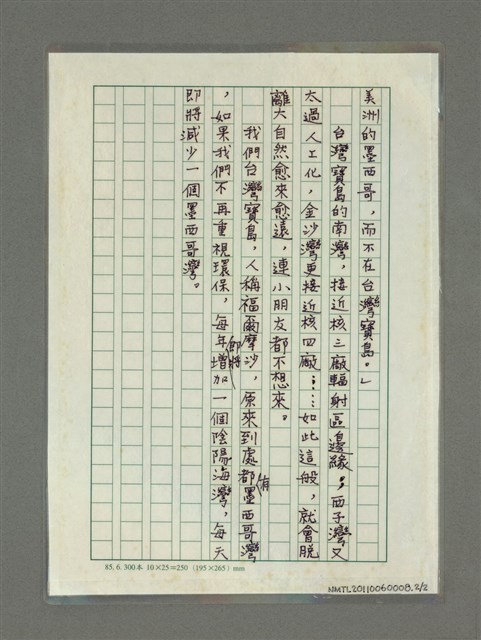 美洲的墨西哥，而不在台灣寶島。」
台灣寶島的南灣，接近核三廠輻射區邊緣；西子灣又
太過人工化，金沙灣更接近核四廠……如此這般，就會脫
離大自然愈來愈遠，連小朋友都不想來。
我們台灣寶島，人稱福爾摩沙，原來到處都有墨西哥灣
，如果我們不再重視環保，每年即將增加一個陰陽海灣，每天
即將減少一個墨西哥灣。
85. 6. 300本 10×25=250 (195×265) mm
NMTL20110060008.2/2